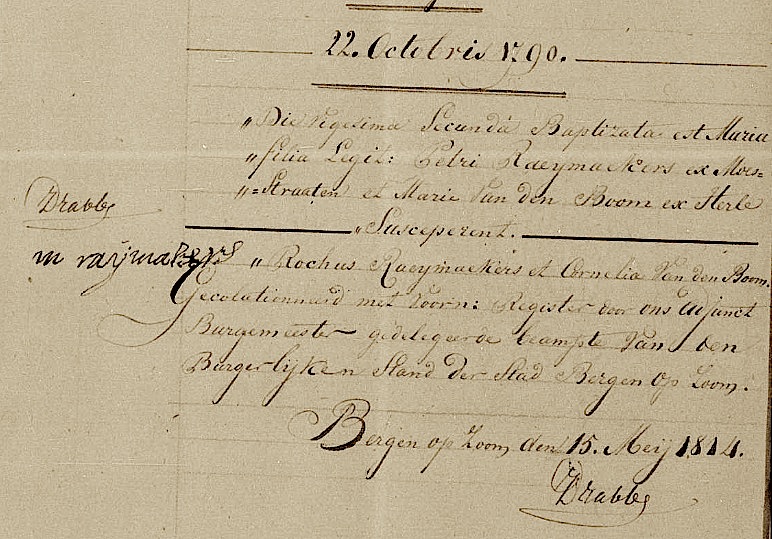 22. Octobris 1790.
„Die vigesima Secunda Baptizata est Maria
„filia Legit: Petri Raeymaekers ex Moer=
„=Straaten et Marie Van den Boom ex Herle
„Susceperent.
„Rochus Raeymaekers et Cornelia Van den Boom.
Gecolationnard met voorn: Register door ons adjunct
Burgemeester gedelegeerde beampte Van den
Burgerlyken Stand der Stad Bergen op Zoom.
Bergen op Zoom den 15. Meij 1814.
Drabbe
Drabbe
m raijmakers